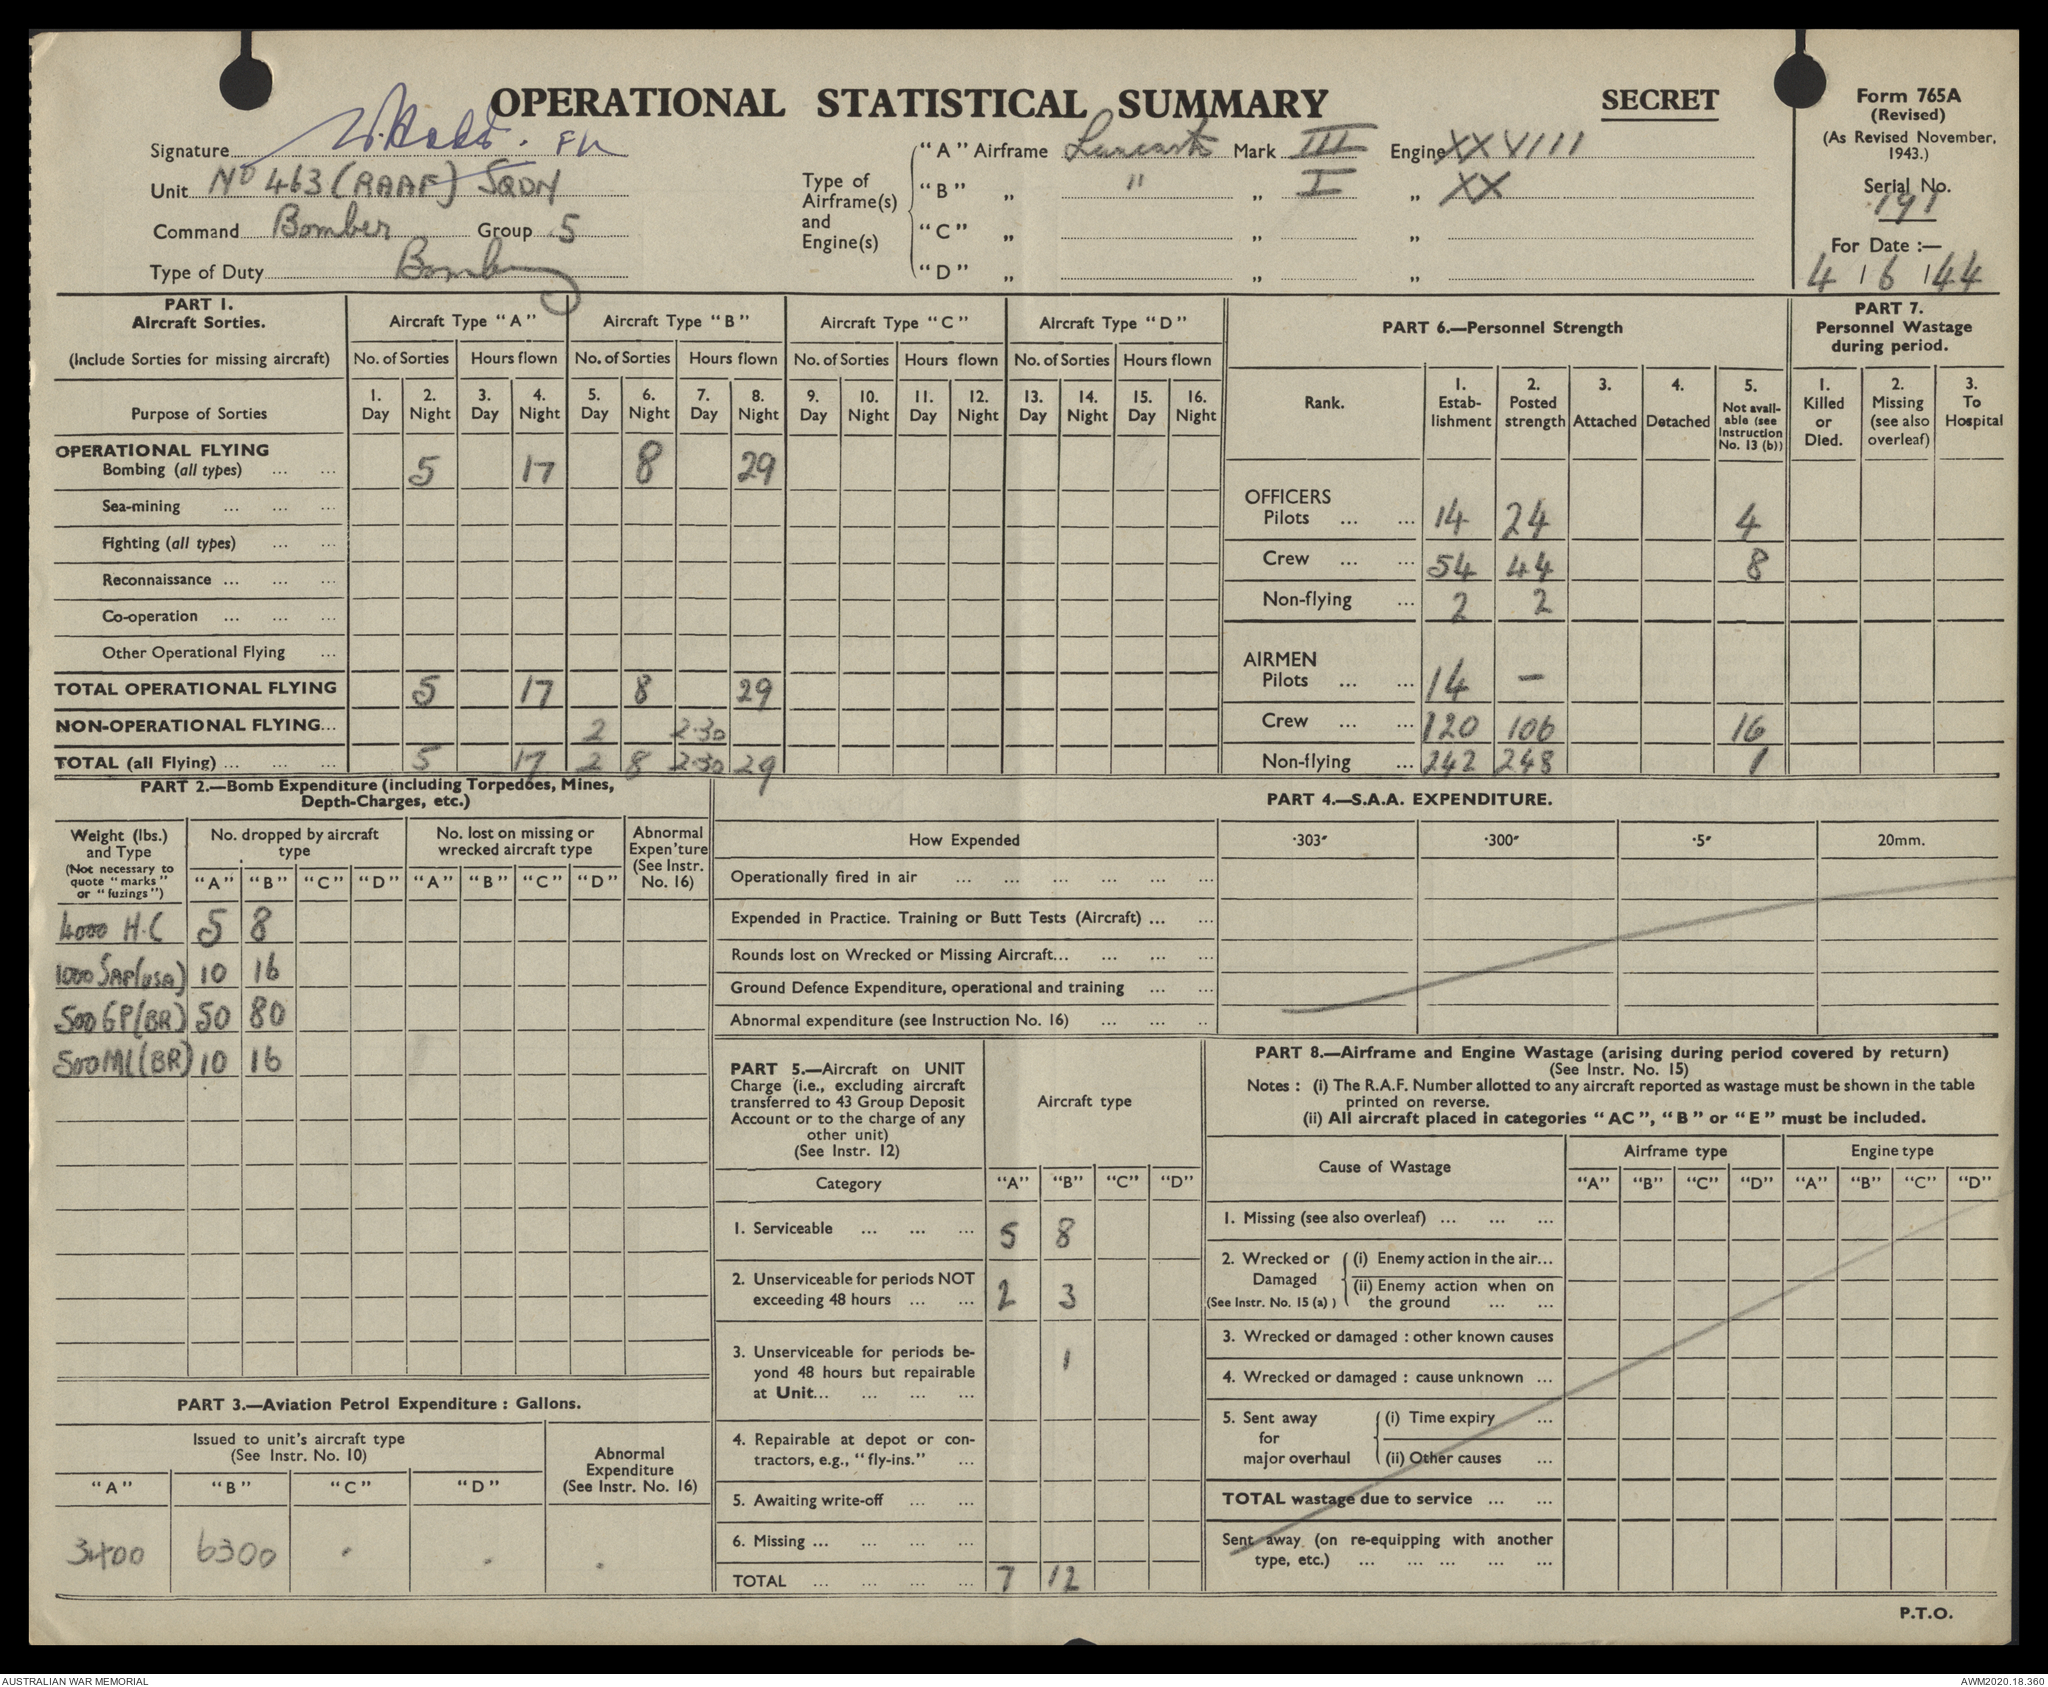 OPERATIONAL STATISTICAL SUMMARY
SECRET
Form 765A
(Revised)
(As Revised November,
1943.)
Serial No.
191
For Date :—
4 / 6 / 44
Signature
Unit No 463 (RAAF) SQDN
Command Bomber Group 5
Type of Duty Bombing
Type of
Airframe(s)
and
Engine(s)
"A" Airframe Lancaster Mark III Engine XXVIII
"B" „ " „ I „ XX
"C" „ „ „
"D" „ „ „
PART 1.
Aircraft Sorties.
(Include Sorties for missing aircraft)
Aircraft Type "A" Aircraft Type "B" Aircraft Type "C" Aircraft Type "D"
No. of Sorties Hours flown No. of Sorties Hours flown No. of Sorties Hours flown No. of Sorties Hours flown
Purpose of Sorties
1. 2. 3. 4. 5. 6. 7. 8. 9. 10. 11. 12. 13. 14. 15. 16.
Day Night Day Night Day Night Day Night Day Night Day Night Day Night Day Night
OPERATIONAL FLYING
Bombing (all types) ... ... 5 17 8 29
Sea-mining ... ... ...
Fighting (all types) ... ...
Reconnaissance ... ... ...
Co-operation ... ... ...
Other Operational Flying ...
TOTAL OPERATIONAL FLYING 5 17 8 29
NON-OPERATIONAL FLYING... 2 2·30
TOTAL (all Flying) ... ... ... 5 17 2 8 2·30 29
PART 6.—Personnel Strength
Rank.
1. Estab-
lishment
2. Posted
strength
3. Attached
4. Detached
5. Not avail-
able (see
Instruction
No. 13 (b))
OFFICERS
Pilots ... ... 14 24 4
Crew ... ... 54 44 8
Non-flying ... 2 2
AIRMEN
Pilots ... ... 14 —
Crew ... ... 120 106 16
Non-flying ... 242 248 1
PART 7.
Personnel Wastage
during period.
1. Killed
or
Died.
2. Missing
(see also
overleaf)
3. To
Hospital
PART 2.—Bomb Expenditure (including Torpedoes, Mines,
Depth-Charges, etc.)
Weight (lbs.)
and Type
(Not necessary to
quote "marks"
or "fuzings")
No. dropped by aircraft
type
No. lost on missing or
wrecked aircraft type
Abnormal
Expen'ture
(See Instr.
No. 16)
"A" "B" "C" "D" "A" "B" "C" "D"
4000 H.C 5 8
1000 SAP(USA) 10 16
500 GP(BR) 50 80
500 MC(BR) 10 16
PART 3.—Aviation Petrol Expenditure : Gallons.
Issued to unit's aircraft type
(See Instr. No. 10)
Abnormal
Expenditure
(See Instr. No. 16)
"A" "B" "C" "D"
3400 6300
PART 4.—S.A.A. EXPENDITURE.
How Expended ·303" ·300" ·5" 20mm.
Operationally fired in air ... ... ... ... ... ...
Expended in Practice. Training or Butt Tests (Aircraft) ... ...
Rounds lost on Wrecked or Missing Aircraft... ... ... ...
Ground Defence Expenditure, operational and training ... ...
Abnormal expenditure (see Instruction No. 16) ... ... ..
PART 5.—Aircraft on UNIT
Charge (i.e., excluding aircraft
transferred to 43 Group Deposit
Account or to the charge of any
other unit)
(See Instr. 12)
Aircraft type
Category "A" "B" "C" "D"
1. Serviceable ... ... ... 5 8
2. Unserviceable for periods NOT
exceeding 48 hours ... ... 2 3
3. Unserviceable for periods be-
yond 48 hours but repairable
at Unit... ... ... ... 1
4. Repairable at depot or con-
tractors, e.g., "fly-ins." ...
5. Awaiting write-off ... ...
6. Missing ... ... ... ...
TOTAL ... ... ... ... 7 12
PART 8.—Airframe and Engine Wastage (arising during period covered by return)
(See Instr. No. 15)
Notes : (i) The R.A.F. Number allotted to any aircraft reported as wastage must be shown in the table
printed on reverse.
(ii) All aircraft placed in categories "AC", "B" or "E" must be included.
Cause of Wastage
Airframe type Engine type
"A" "B" "C" "D" "A" "B" "C" "D"
1. Missing (see also overleaf) ... ... ...
2. Wrecked or
Damaged
(See Instr. No. 15 (a) )
(i) Enemy action in the air...
(ii) Enemy action when on
the ground ... ...
3. Wrecked or damaged : other known causes
4. Wrecked or damaged : cause unknown ...
5. Sent away
for
major overhaul
(i) Time expiry ...
(ii) Other causes ...
TOTAL wastage due to service ... ...
Sent away (on re-equipping with another
type, etc.) ... ... ... ... ...
P.T.O.
AUSTRALIAN WAR MEMORIAL
AWM2020.18.360